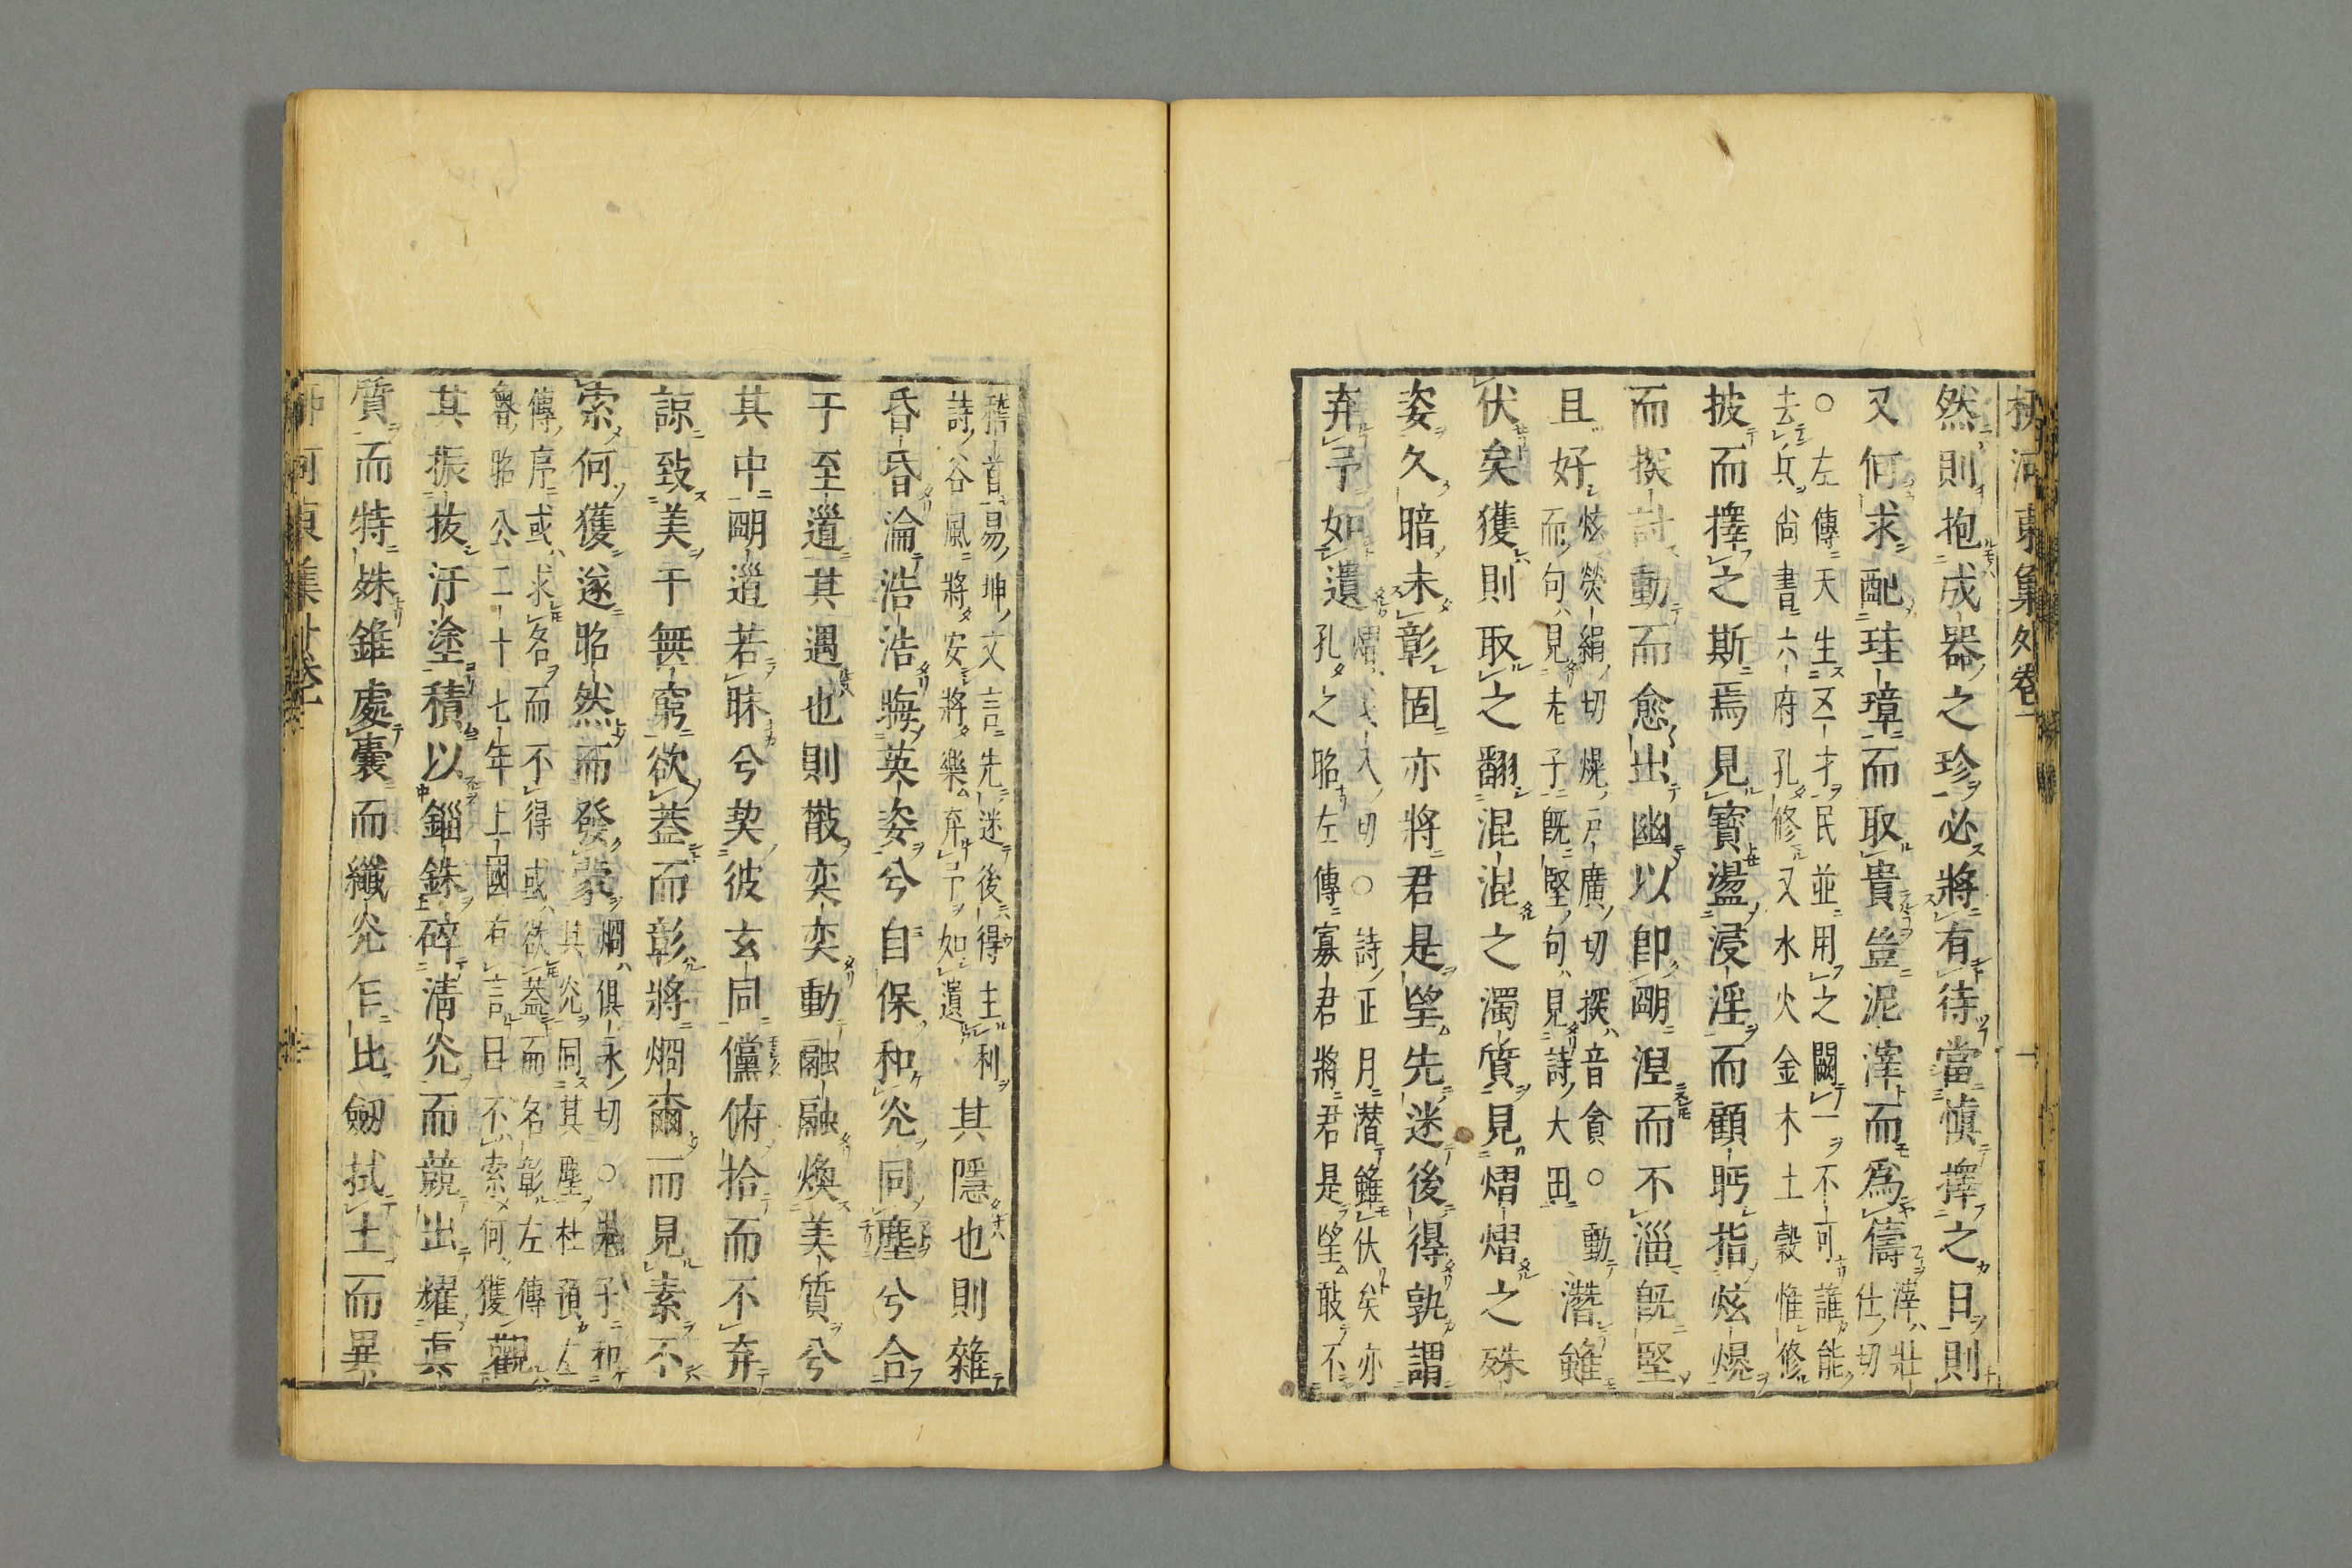 柳河東集外卷一
然則抱成器之珍必將有待當愼擇之日則
又何求配珪璋而取貴豈泥滓而爲儔滓壯仕切
○左傳天生五才民並用之闕一不可誰能去兵尚書六府孔修又水火金木土穀惟修
披而擇之斯焉見寶盪浸淫而顧眄指炫熀
而探討動而愈出幽以卽朙涅而不淄旣堅
且好炫熒絹切熀戶廣切探音貪○動而句見老子旣堅句見詩大田潛雖
伏矣獲則取之翻混混之濁質見熠熠之殊
姿久暗未彰固亦將君是望先迷後得孰謂
弃予如遺熠入切○詩正月潛雖伏矣亦孔之昭左傳寡君將君是望敢不
稽首易坤文言先迷後得主利詩谷風將安將樂弃予如遺其隱也則雜
昏昏淪浩浩晦英姿兮自保和光同塵兮合
于至道其遇也則散奕奕動融融煥美質兮
其中朙道若昧兮契彼玄同儻俯拾而不弃
諒致美于無窮欲蓋而彰將烱爾而見素不
索何獲遂昭然而發蒙烱俱永切○老子和其光同其塵杜預左
傳序或求名而不得或欲蓋而名彰左傳魯昭公二十七年上國有言曰不索何獲觀
其振拔汙塗積以錙銖碎淸光而競出耀眞
質而特殊錐處囊而纖光乍比劒拭土而異
柳河東集外卷一